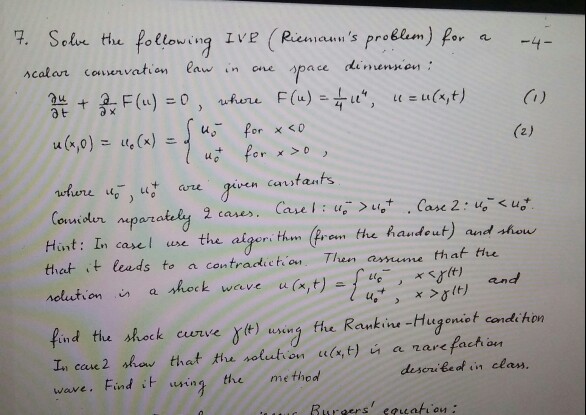 7. Solve the following IVP (Riemann's problem) for a -4-
scalar conservation law in one space dimension:
∂u/∂t + ∂/∂x F(u) = 0, where F(u) = 1/4 u⁴, u = u(x,t) (1)
u(x,0) = u₀(x) = { u₀⁻ for x < 0 (2)
u₀⁺ for x > 0,
where u₀⁻, u₀⁺ are given constants.
Consider separately 2 cases. Case 1: u₀⁻ > u₀⁺. Case 2: u₀⁻ < u₀⁺.
Hint: In case 1 use the algorithm (from the handout) and show
that it leads to a contradiction. Then assume that the
solution is a shock wave u(x,t) = { u₀⁻, x < γ(t) and
u₀⁺, x > γ(t)
find the shock curve γ(t) using the Rankine-Hugoniot condition
In case 2 show that the solution u(x,t) is a rarefaction
wave. Find it using the method described in class.
Burgers' equation: